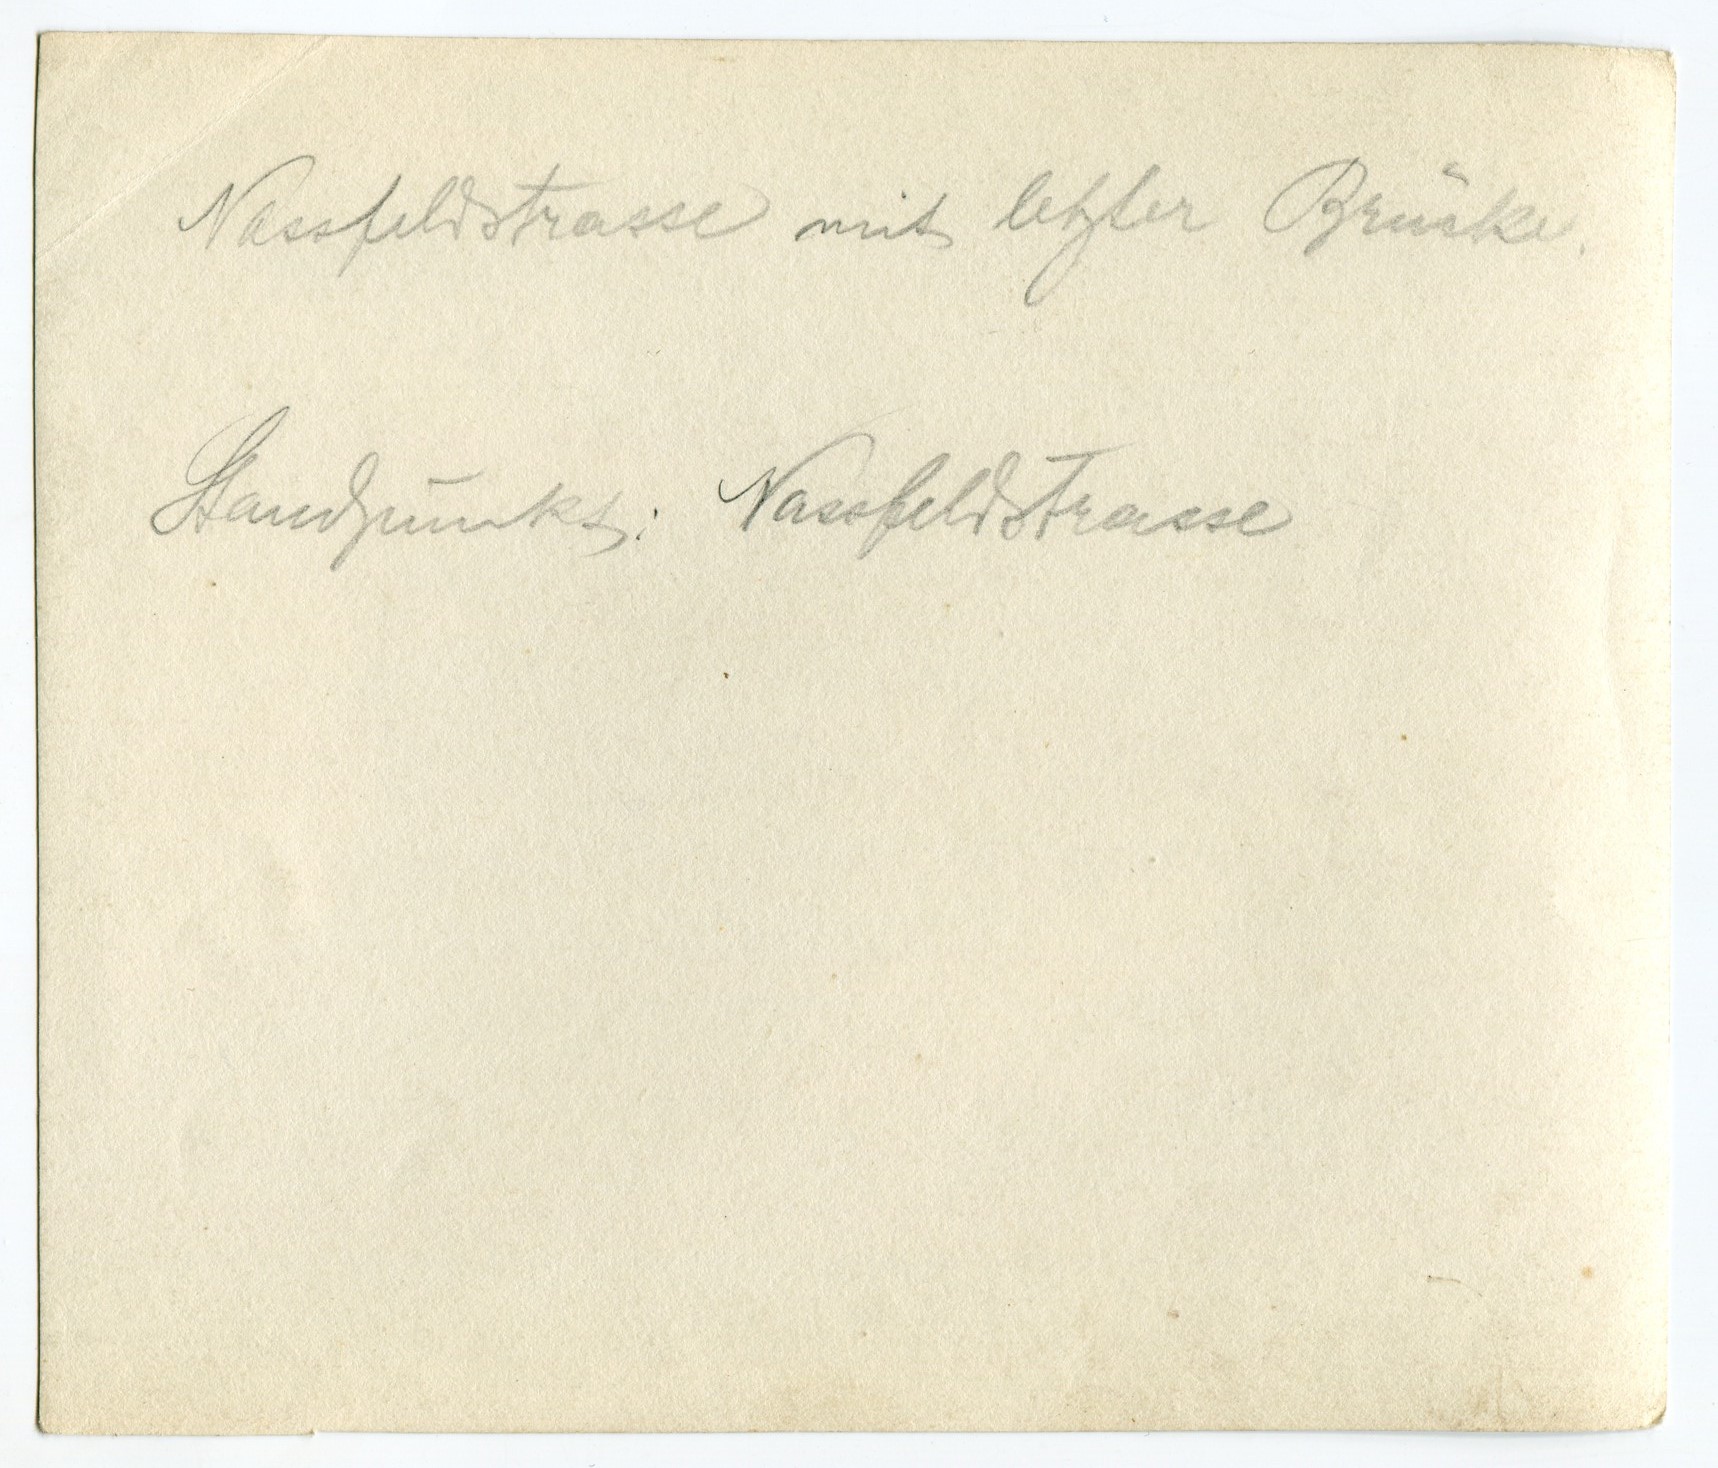 Nassfeldstrasse mit letzter Brücke.
Standpunkt: Nassfeldstrasse